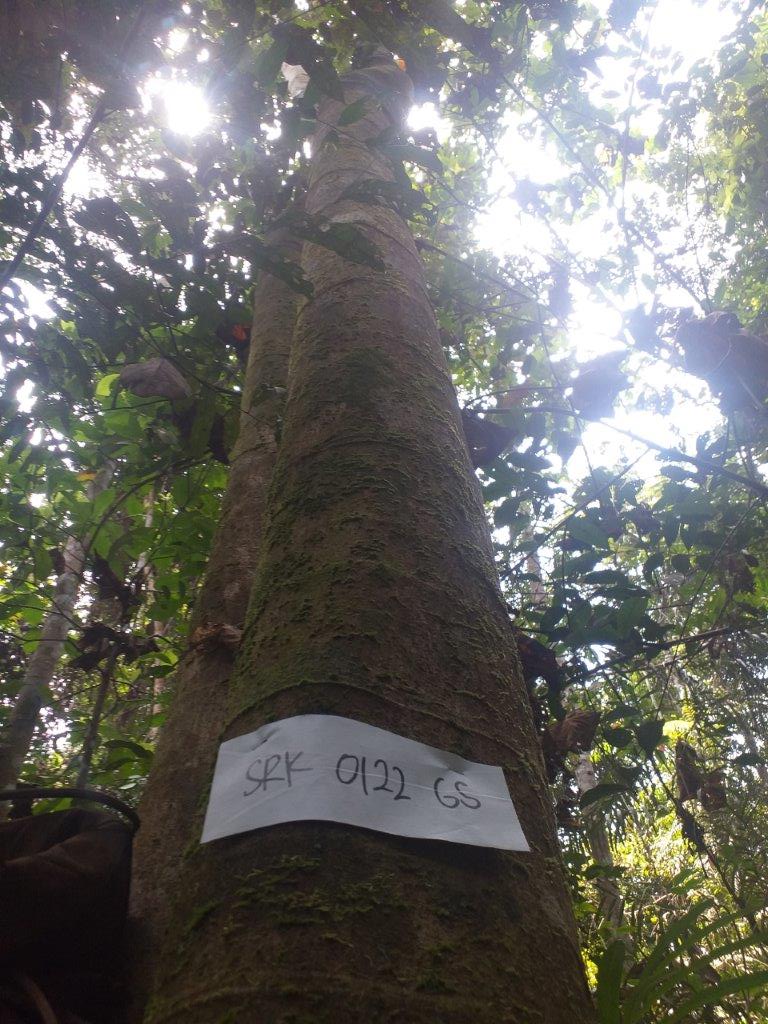 SRK 0122 GS